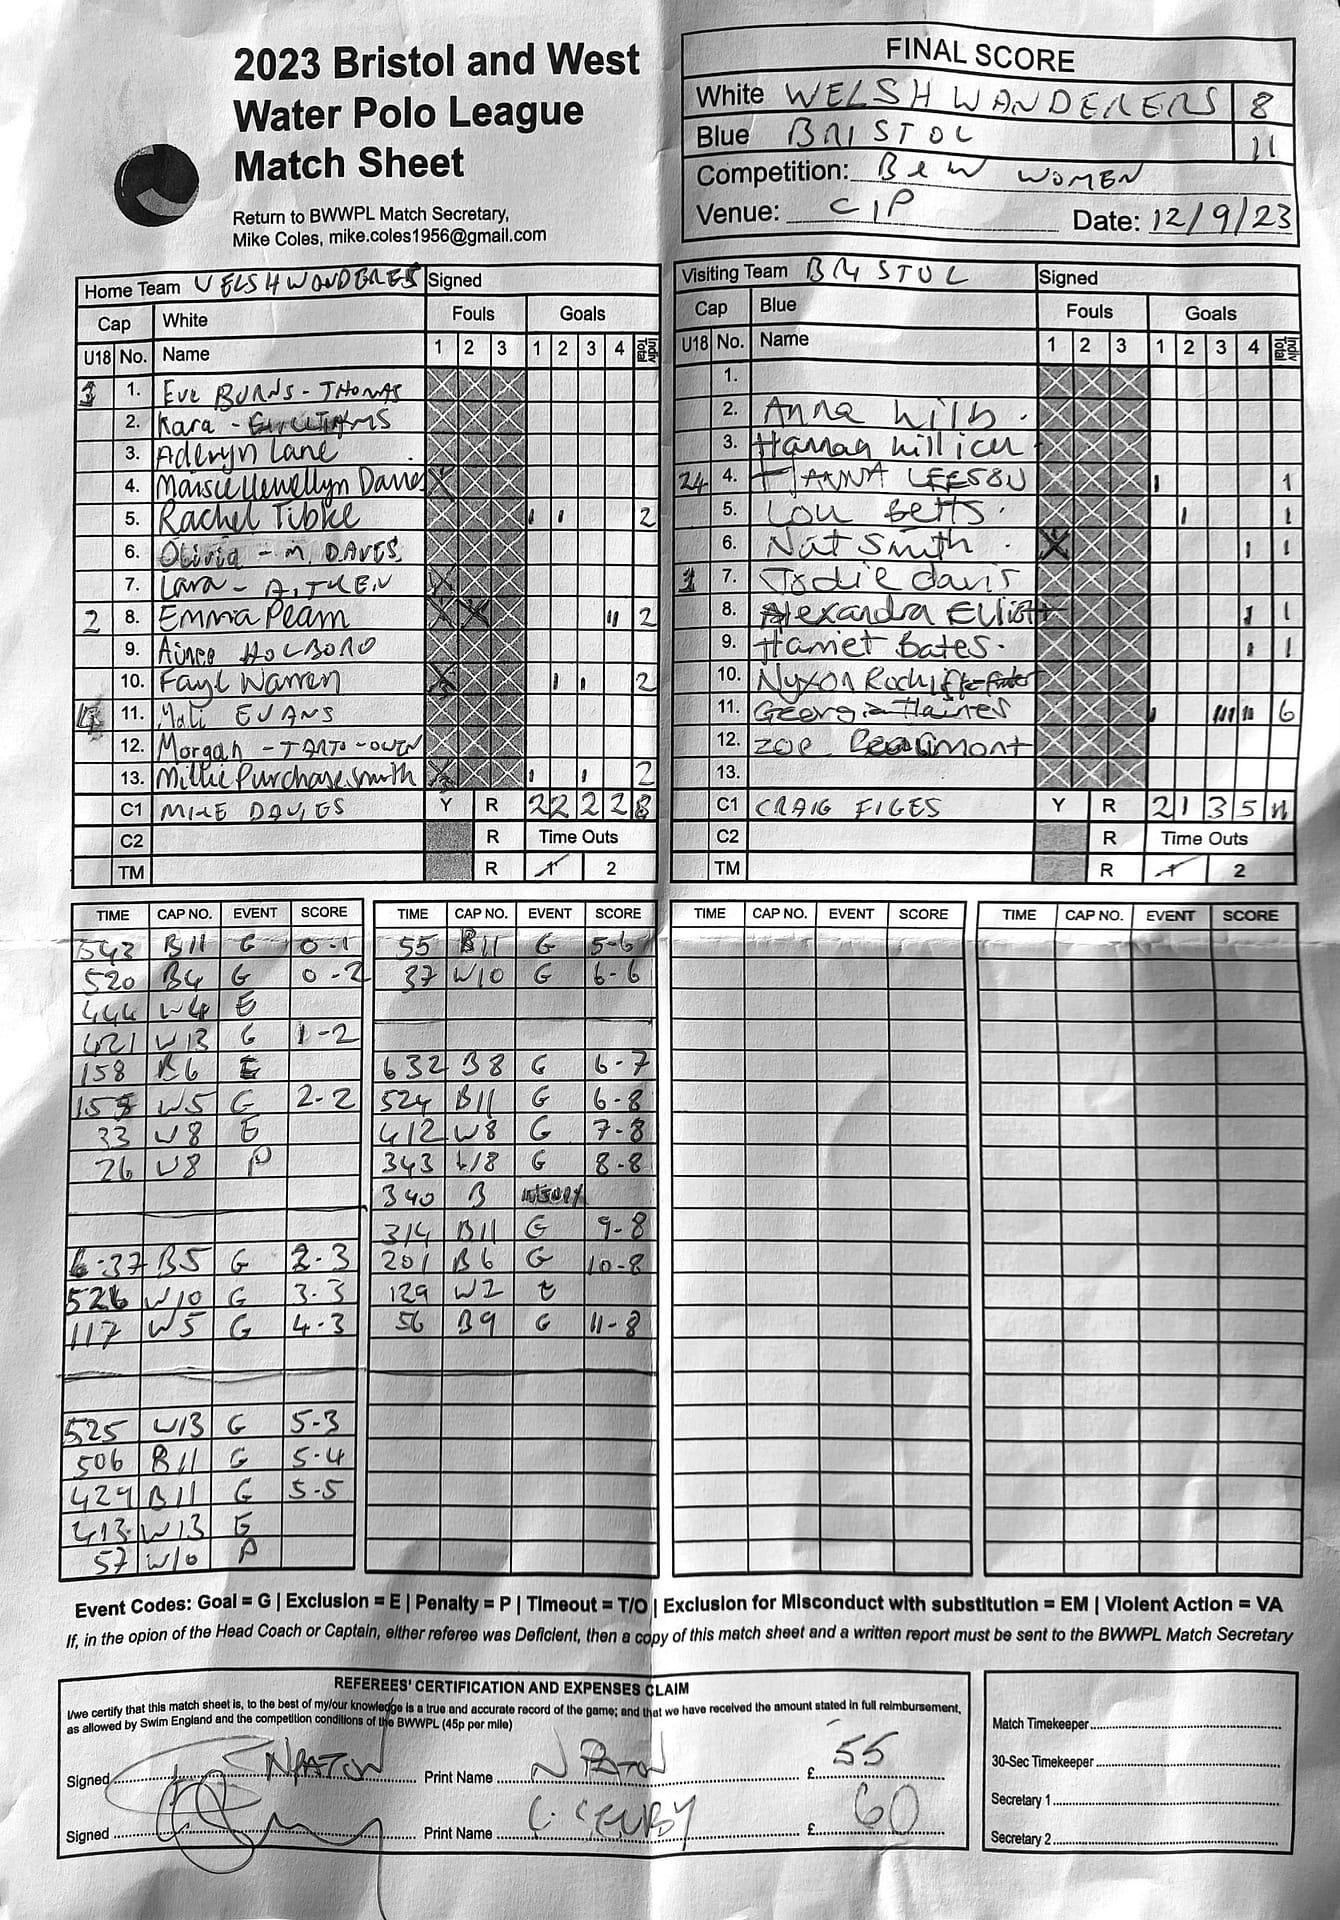 2023 Bristol and West
Water Polo League
Match Sheet
Return to BWWPL Match Secretary,
Mike Coles, mike.coles1956@gmail.com
FINAL SCORE
White WELSH WANDERERS 8
Blue BRISTOL 11
Competition: B & W WOMEN
Venue: CIP Date: 12/9/23
Home Team WELSH WONDERES Signed
Cap White Fouls Goals
U18 No. Name 1 2 3 1 2 3 4 Indiv Total
1. EVE BURNS - THOMAS
2. Kara -
3. Aderyn Lane
4. Marsie Llewellyn Davies X
5. Rachel Tibke I I 2
6. Olivia - M. DAVES
7. Lara - AITKEN X
2 8. Emma Pearn X X II 2
9. Aimee HOLBORO
10. Faye Warren X I I 2
11. Mali EVANS
12. Morgan - TANTO-OWEN
13. Millie Purchase.smith X I I 2
C1 MIKE DAVIES Y R 2 2 2 2 8
C2 R Time Outs
TM R 1 2
Visiting Team BRISTOL Signed
Cap Blue Fouls Goals
U18 No. Name 1 2 3 1 2 3 4 Indiv Total
1.
2. Anna Wilb
3. Hannah Willicu
24 4. HANNA LEESON I 1
5. Lou Betts. I 1
6. Nat Smith X I 1
7. Jodie davis
8. Alexandra Elliott I 1
9. Harriet Bates. I 1
10. Nyxon
11. Georgia Haines I III II 6
12. Zoe Beaumont
13.
C1 CRAIG FIGES Y R 2 1 3 5 11
C2 R Time Outs
TM R 1 2
TIME CAP NO. EVENT SCORE
543 B11 G 0-1
520 B4 G 0-2
444 W4 E
421 W13 G 1-2
158 B6 E
155 W5 G 2-2
33 W8 E
26 W8 P
6-37 B5 G 2-3
526 W10 G 3-3
117 W5 G 4-3
525 W13 G 5-3
506 B11 G 5-4
429 B11 G 5-5
413 W13 E
57 W10 P
TIME CAP NO. EVENT SCORE
55 B11 G 5-6
37 W10 G 6-6
632 B8 G 6-7
524 B11 G 6-8
412 W8 G 7-8
343 W8 G 8-8
340 B INJURY
314 B11 G 9-8
201 B6 G 10-8
129 W2 E
56 B9 G 11-8
TIME CAP NO. EVENT SCORE
TIME CAP NO. EVENT SCORE
Event Codes: Goal = G | Exclusion = E | Penalty = P | Timeout = T/O | Exclusion for Misconduct with substitution = EM | Violent Action = VA
If, in the opion of the Head Coach or Captain, either referee was Deficient, then a copy of this match sheet and a written report must be sent to the BWWPL Match Secretary
REFEREES' CERTIFICATION AND EXPENSES CLAIM
I/we certify that this match sheet is, to the best of my/our knowledge is a true and accurate record of the game; and that we have received the amount stated in full reimbursement,
as allowed by Swim England and the competition conditions of the BWWPL (45p per mile)
Signed NPATON Print Name N PATON £ 55
Signed Print Name £ 60
Match Timekeeper
30-Sec Timekeeper
Secretary 1
Secretary 2